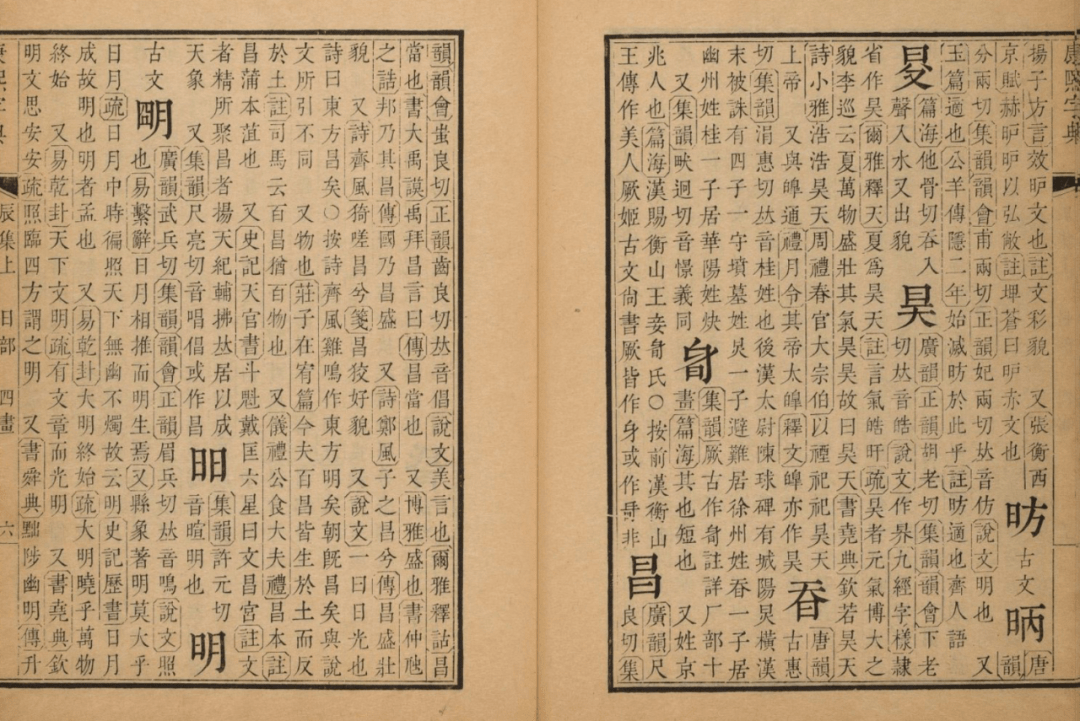 康熙字典
揚子方言效昈文也註文彩貌　又張衡西
京賦赫昈昈以弘敞註埤蒼曰昈赤文也
昉
古文
昞
唐
韻
分兩切集韻韻會甫兩切正韻妃兩切𠀤音仿說文明也　又
玉篇適也公羊傳隱二年始滅昉於此乎註昉適也齊人語
篇海他骨切吞入
聲入水又出貌
昊
廣韻正韻胡老切集韻韻會下老
切𠀤音皓說文作界九經字樣隸
省作昊爾雅釋天夏爲昊天註言氣皓旰疏昊者元氣博大之
貌李巡云夏萬物盛壯其氣昊昊故曰昊天書堯典欽若昊天
詩小雅浩浩昊天周禮春官大宗伯以禋祀祀昊天
上帝　又與皥通禮月令其帝太皥釋文皥亦作昊
昋
唐韻
古惠
切集韻涓惠切𠀤音桂姓也後漢太尉陳球碑有城陽炅橫漢
末被誅有四子一守墳墓姓炅一子避難居徐州姓昋一子居
幽州姓桂一子居華陽姓炔集韻厥古作㫑註詳厂部十
又集韻畎迥切音憬義同
㫑
畫篇海其也短也　又姓京
兆人也篇海漢陽衡山王妾㫑氏○按前漢衡山
王傳作美人厥姬古文尙書厥皆作身或作㫑非
昌
廣韻尺
良切集
韻韻會蚩良切正韻齒良切𠀤音倡說文美言也爾雅釋詁昌
當也書大禹謨禹拜昌言曰傳昌當也　又博雅盛也書仲虺
之誥邦乃其昌傳國乃昌盛　又詩鄭風子之昌兮傳昌盛壯
貌　又詩齊風猗嗟昌兮箋昌狡好貌　又說文一曰日光也
詩曰東方昌矣○按詩齊風雞鳴作東方明矣朝旣昌矣與說
文所引不同　又物也莊子在宥篇今夫百昌皆生於土而反
於土註司馬云百昌猶百物也　又儀禮公食大夫禮昌本註
昌蒲本菹也　又史記天官書斗魁戴匡六星曰文昌宮註文
者精所聚昌者揚天紀輔拂𠀤居以成
天象　又集韻尺亮切音唱倡或作昌
昍
集韻許元切
音暄明也
明
古文
朙
廣韻武兵切集韻韻會正韻眉兵切𠀤音鳴說文照
也易繫辭日月相推而明生焉又縣象著明莫大乎
日月疏日月中時徧照天下無幽不燭故云明史記歷書日月
成故明也明者孟也　又易乾卦大明終始疏大明曉乎萬物
終始　又易乾卦天下文明疏有文章而光明　又書堯典欽
明文思安安疏照臨四方謂之明　又書舜典黜陟幽明傳升
康熙字典　辰集上　日部　四畫　六